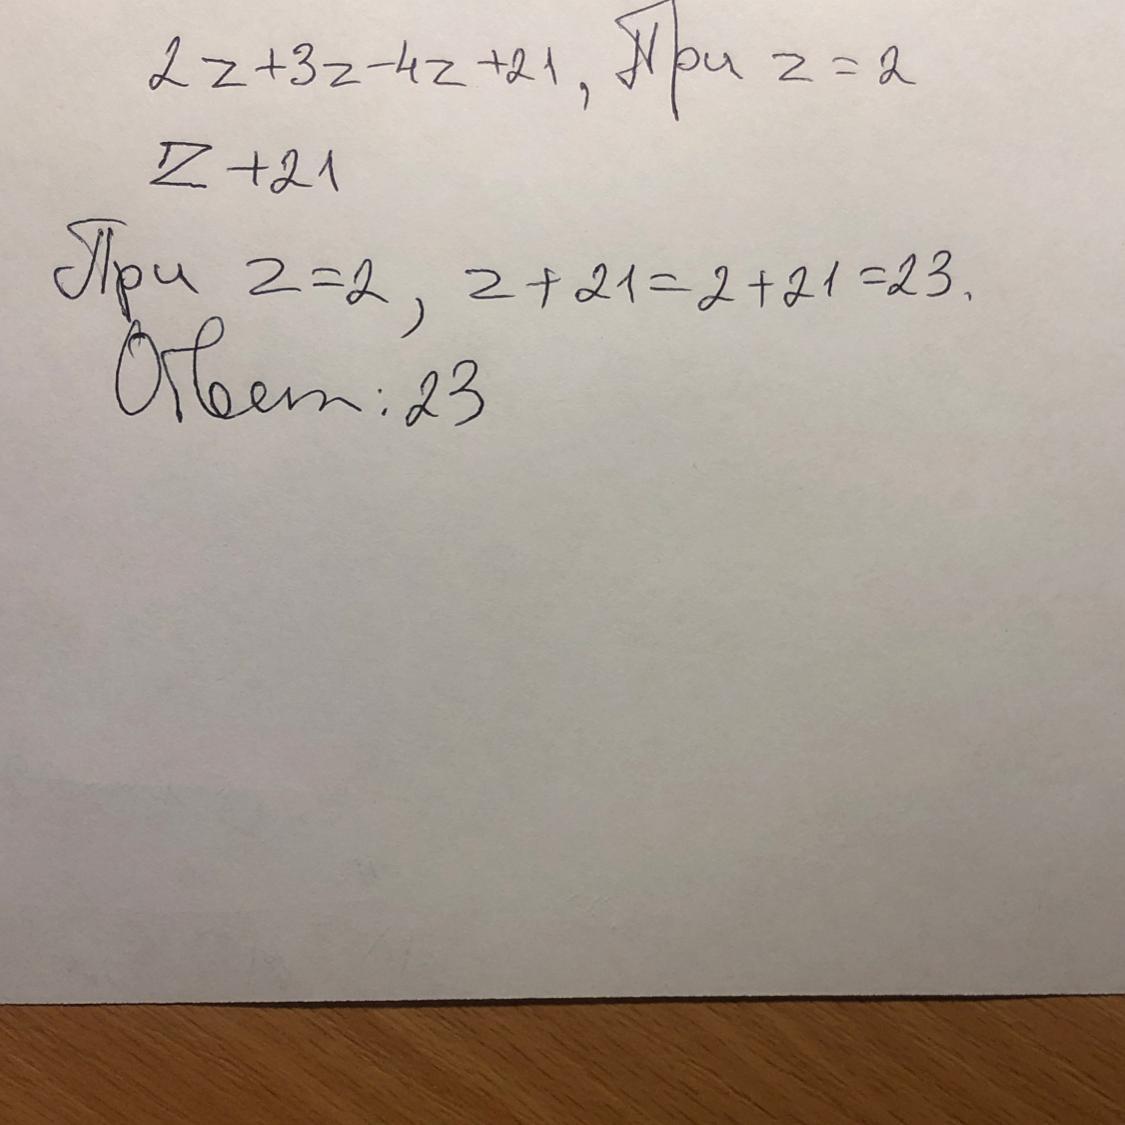 2z+3z-4z+21, При z=2
z+21
При z=2, z+21=2+21=23.
Ответ: 23